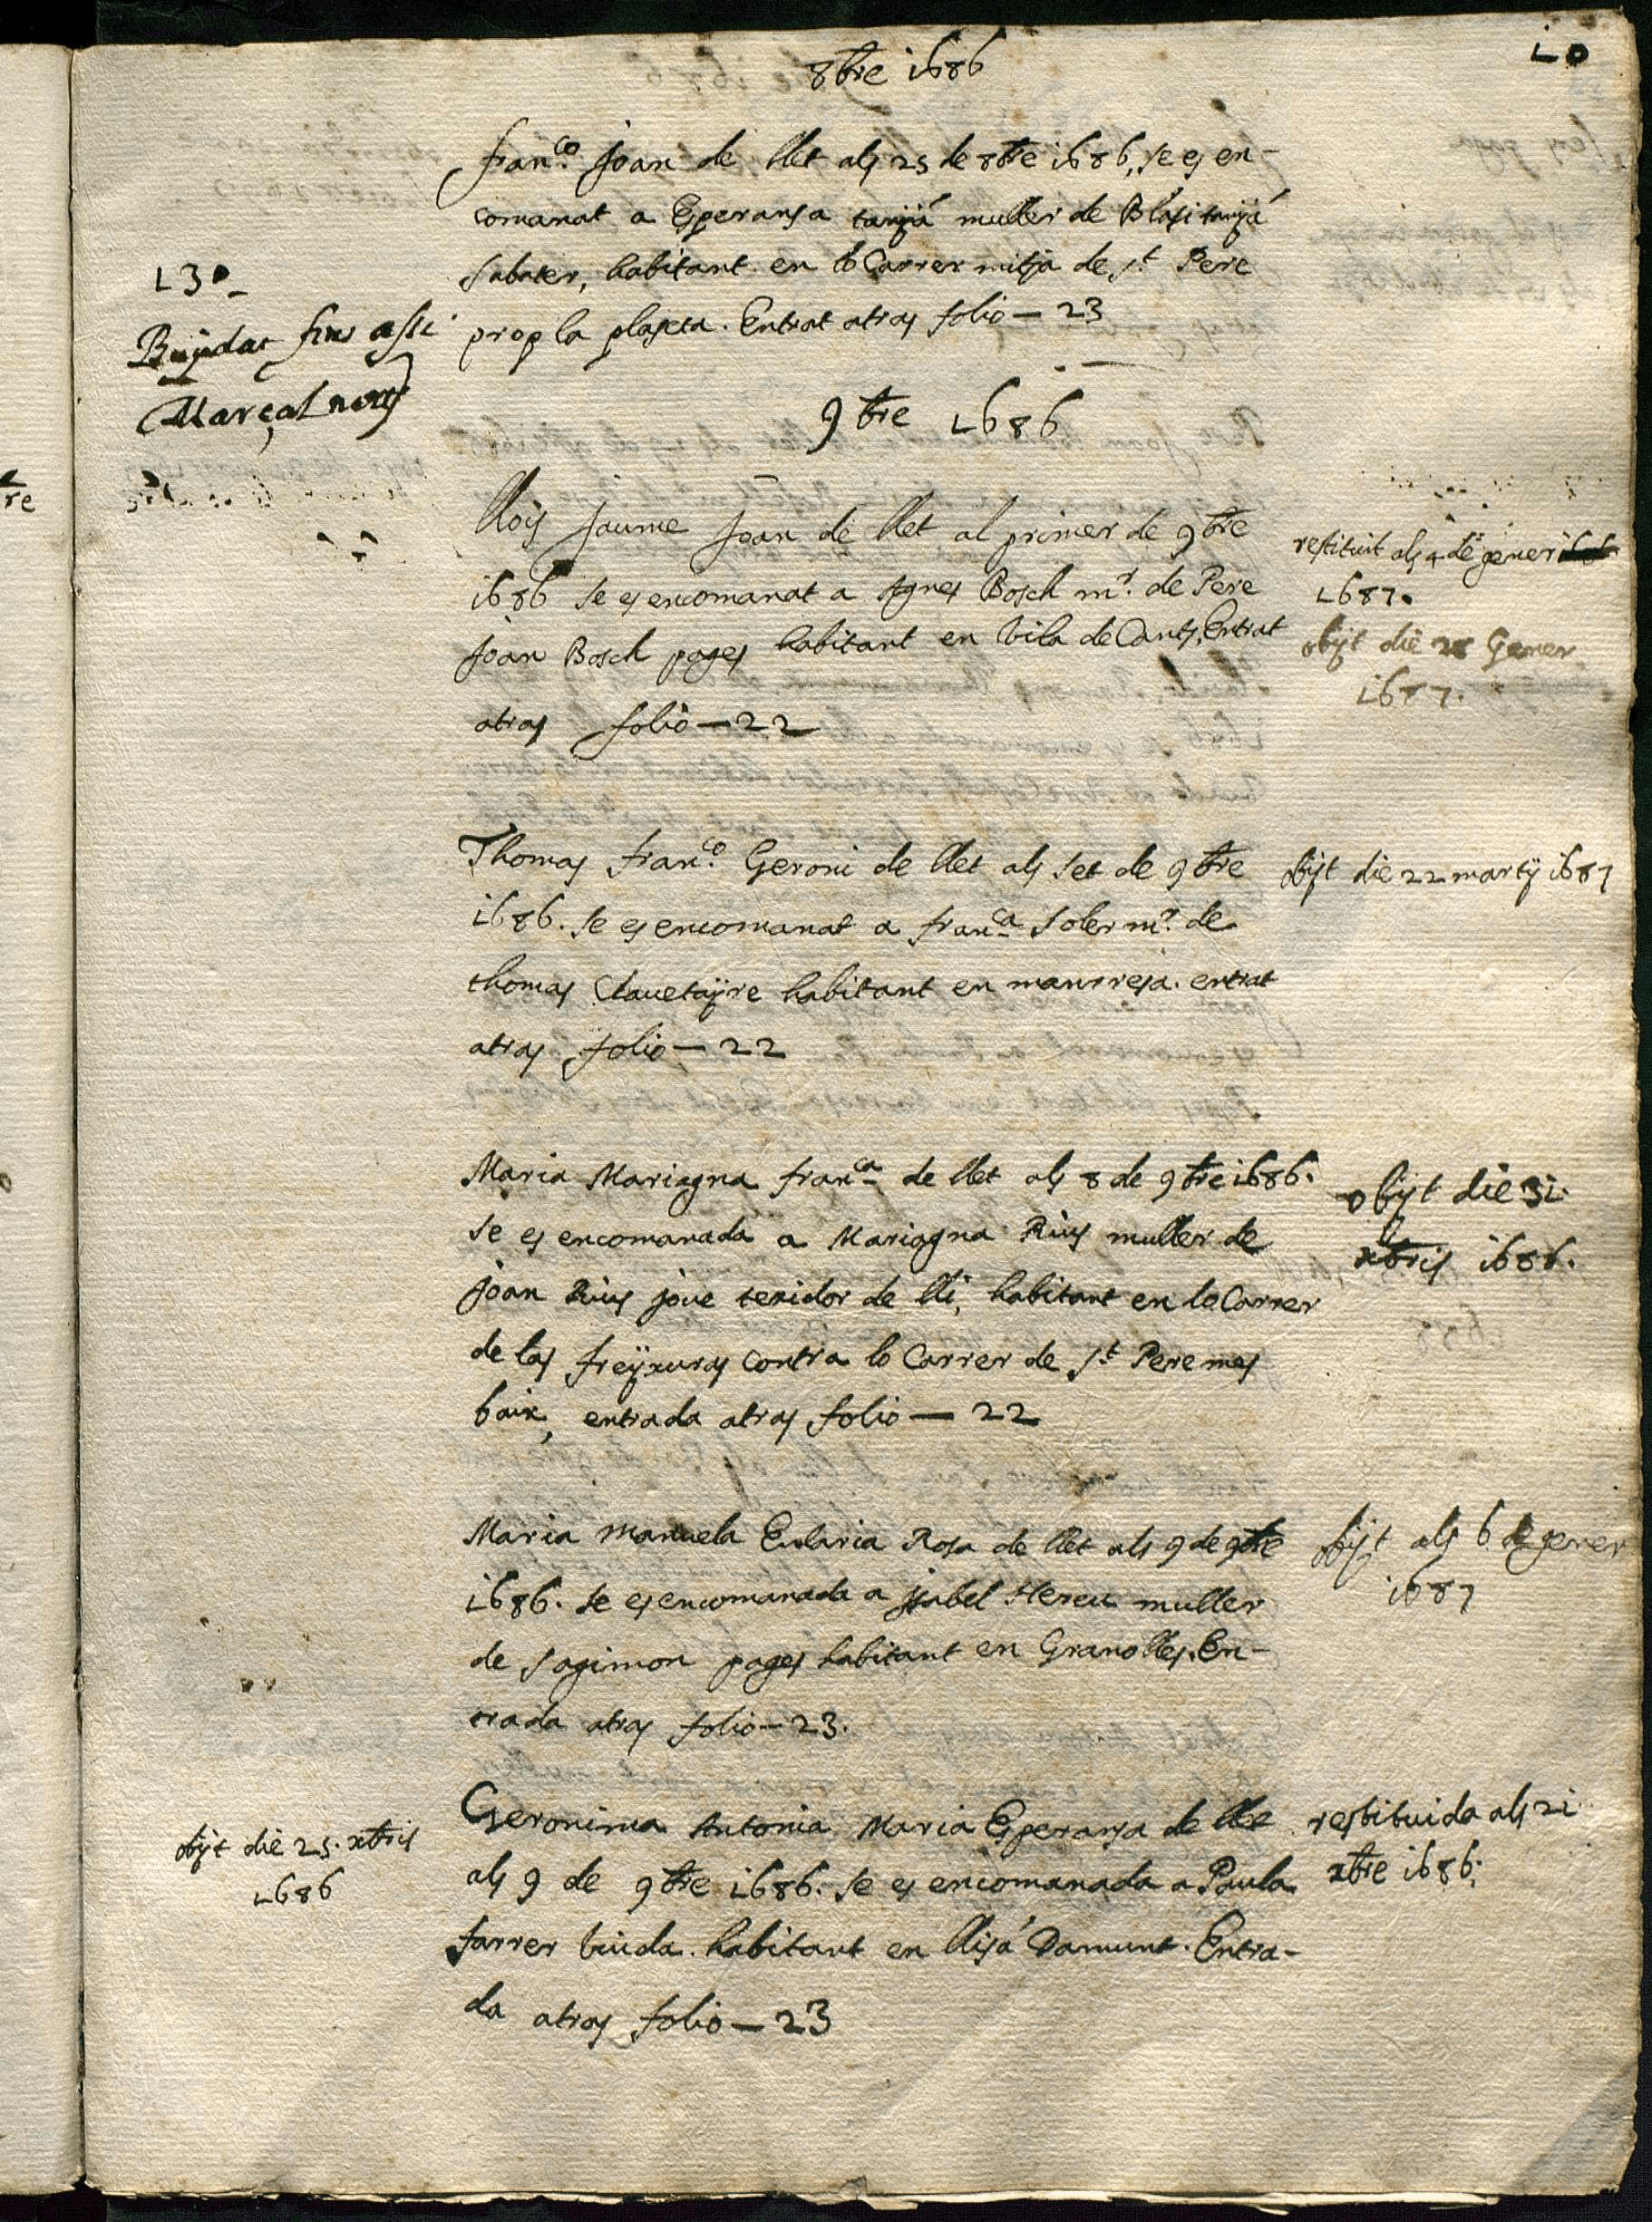 10
8bre 1686
franco. Joan de llet als 25 de 8bre 1686, se es en-
comanat a Esperansa tanjá muller de Blasi tanjá
sabater, habitant en lo Carrer mitja de st Pere
prop la plaseta. Entrat atras folio — 23
130_
fins assi
Marçal
9bre 1686
llois Jaume Joan de llet al primer de 9bre
1686 se es encomanat a Agnes Bosch mr. de Pere
Joan Bosch pages habitant en Vila de Cants, Entrat
atras folio — 22
restituit als 4 de gener
1687.
obijt die 28 Gener
1687.
Thomas franco. Geroni de llet als set de 9bre
1686. se es encomanat a franca soler mr. de
thomas Clauetayre habitant en manrresa. entrat
atras folio — 22
obijt die 22 martij 1687
Maria Mariagna franca de llet als 8 de 9bre 1686.
se es encomanada a Mariagna Rius muller de
Joan Rius jove texidor de lli, habitant en lo Carrer
de las freyxuras contra lo Carrer de st Pere mes
baix, entrada atras folio — 22
obijt die 31
xbris 1686.
Maria Manuela Eularia Rosa de llet als 9 de 9bre
1686. se es encomanada a Isabel Hereu muller
de sagimon pages habitant en Granolles. En-
trada atras folio — 23.
obijt als 6 de gener
1687
Geronima Antonia Maria Esperansa de llet
als 9 de 9bre 1686. se es encomanada a Paula
farrer viuda. habitant en llisá Damunt. Entra-
da atras folio — 23
restituida als 21
xbre 1686.
obijt die 25. xbris
1686